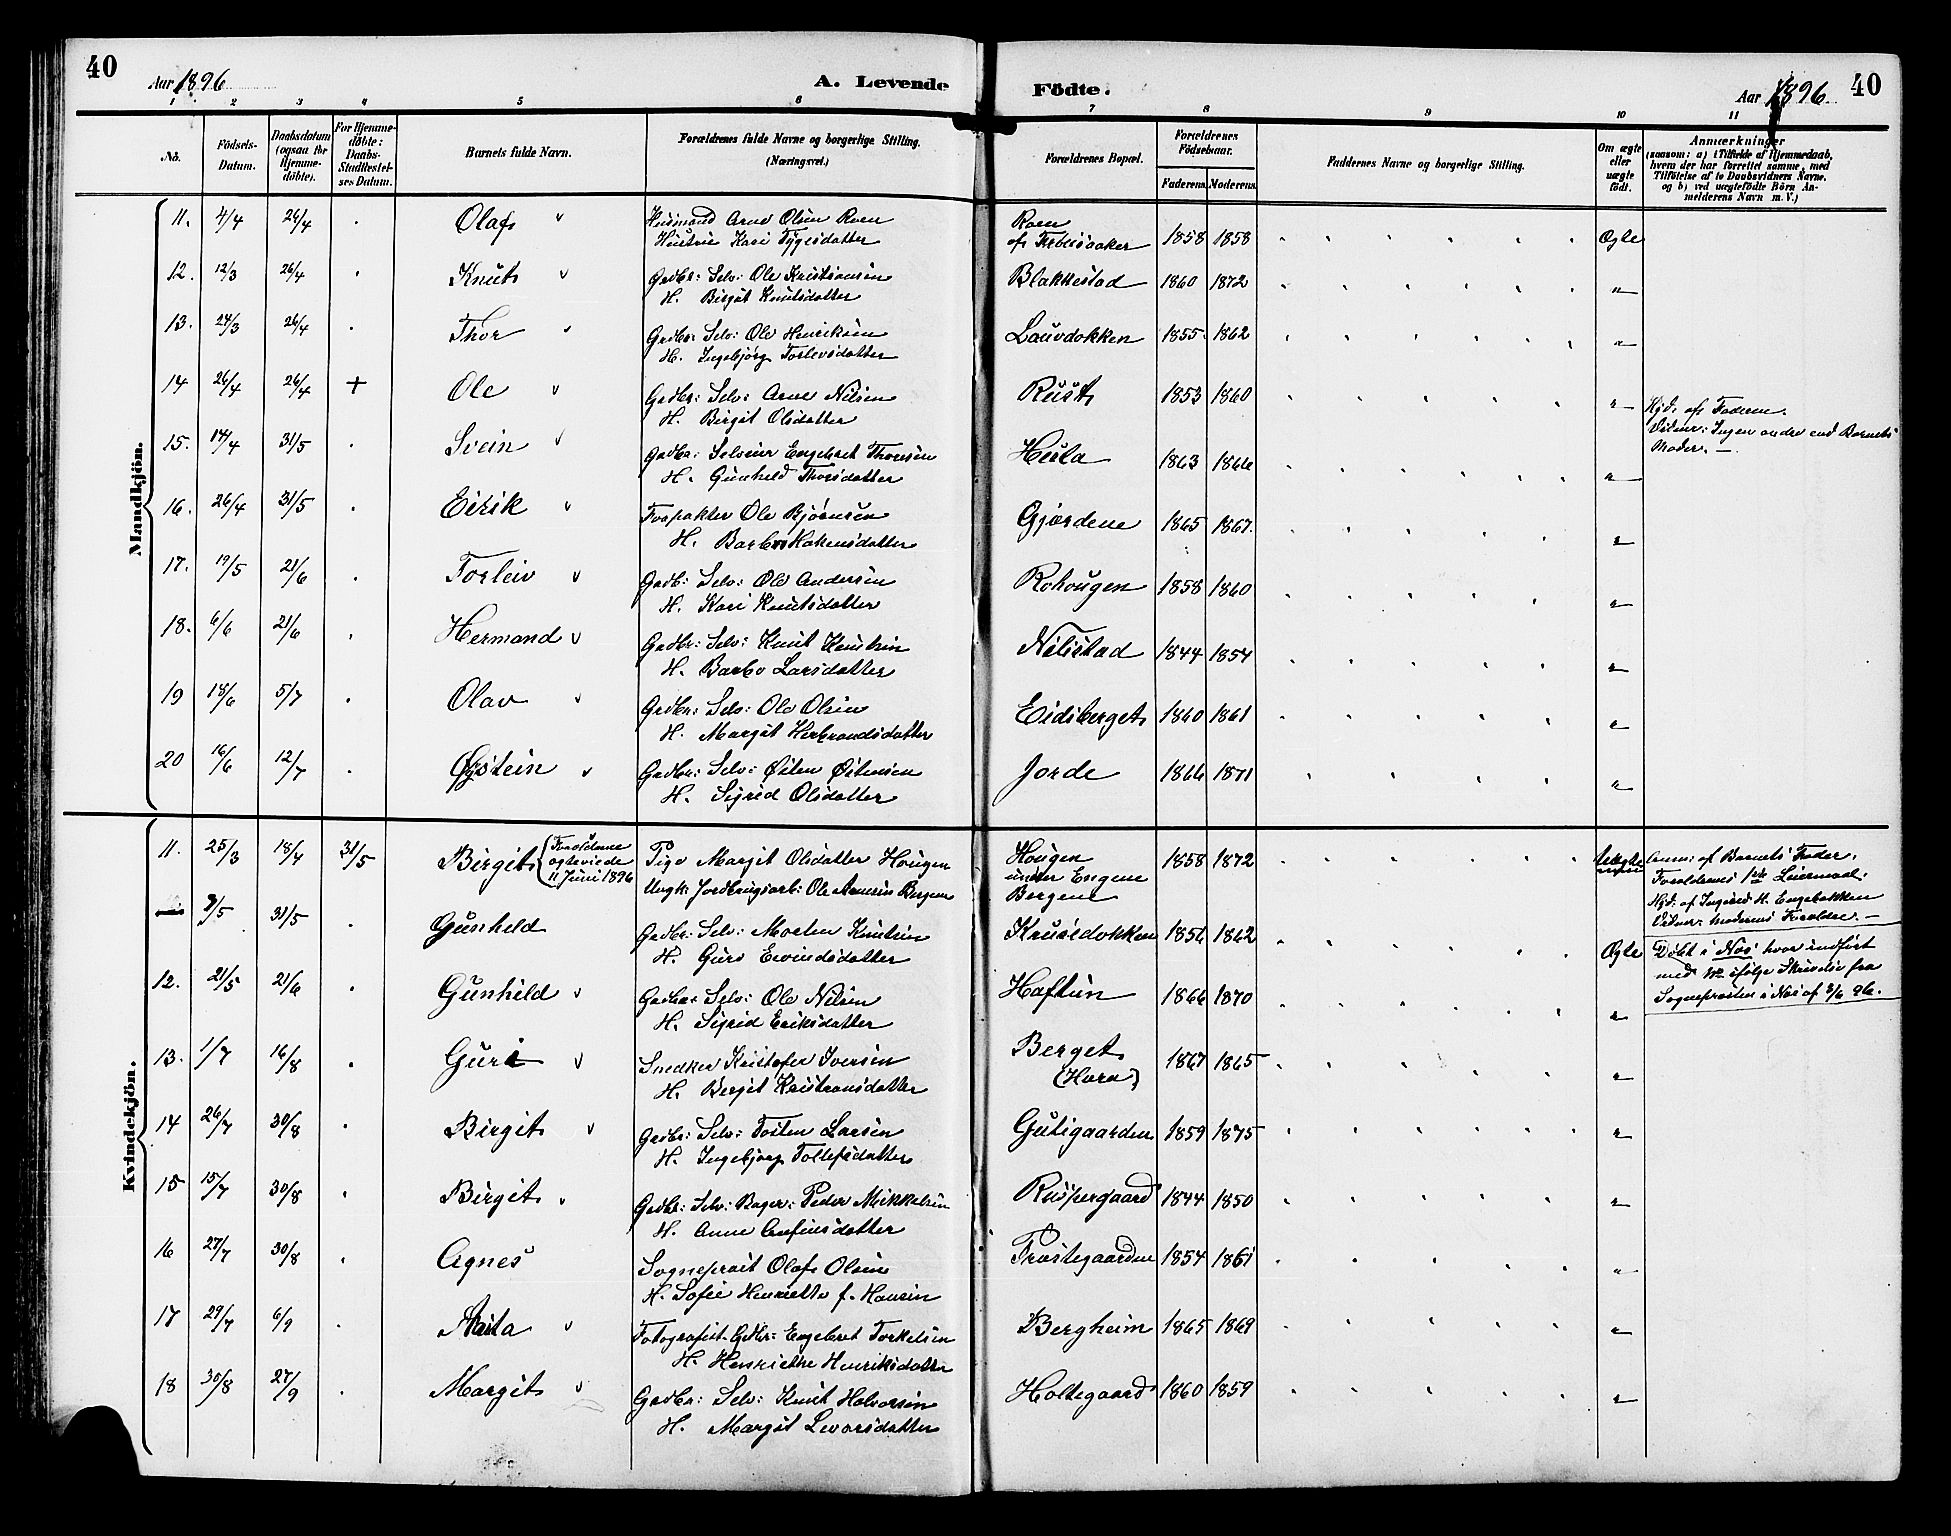 40
Aar 1896
A. Levende
Födte.
Aar 1896
40
1 2 3 4 5 6 7 8 9 10 11
No.
Födsels-Datum.
Daabsdatum (ogsaa for Hjemme-döbte).
For Hjemme-döbte: Daabs-Stadfæstel-ses Datum.
Barnets fulde Navn.
Forældrenes fulde Navne og borgerlige Stilling.
(Næringsvei.)
Forældrenes Bopæl.
Forældrenes Födselsaar.
Faderens Moderens
Faddernes Navne og borgerlige Stilling.
Om ægte eller uægte födt.
Anmærkninger
(saasom: a) i Tilfælde af Hjemmedaab,
hvem der har forrettet samme, med
Tilföielse af to Daabsvidners Navne,
og b) ved uægtefödte Börn An-
melderens Navn m. V.)
Mandkjön.
11. 4/4 26/4 Olaf Husmand Arne Olsen Roen Roen 1858 1858 Ægte
Hustru Kari Tygesdatter af
12. 12/3 26/4 Knut Grdbr: Selv: Ole Kristiansen Blakkestad 1860 1872 "
H. Birgit Knutsdatter
13. 24/3 26/4 Thor Grdbr: Selv: Ole Henriksen Lauvdokken 1855 1862 "
H. Ingebjørg Torlevsdatter
14 26/4 26/4 + Ole Grdbr: Selv: Arne Nilsen Rust 1853 1860 " Hjd. af Faderen.
H. Birgit Olsdatter Vidner: Ingen andre end Barnets
Moder. —
15. 14/4 31/5 Svein Grdbr: Selveier Engebret Thorsen Hula 1863 1866 "
H. Gunhild Thorsdatter
16. 26/4 31/5 Eirik Forpakter Ole Bjørnsen Gjordene 1865 1867. "
H. Barbro Hakensdatter
17. 19/5 21/6 Torleiv Grdb: Selv: Ole Andersen Rohougen 1858 1860 "
H. Kari Knutsdatter
18. 6/6 21/6 Hermand Grdbr: Selv: Knut Knutsen Nilistad 1844 1854 "
H. Barbo Larsdatter
19 18/6 5/7 Olav Grdbr: Selv: Ole Olsen Eidsberget 1860 1861 "
H. Margit Herbrandsdatter
20 16/6 12/7 Øystein Grdbr: Selv: Østen Østensen Jorde 1866 1871 "
H. Sigrid Olsdatter
Kvindekjön.
11. 25/3 18/4 31/5 Birgit (Forældrene ægteviede 11 Juni 1896 Pige Margit Olsdatter Hougen Hougen 1858 1872 Uægte Anm: af Barnets Fader.
Ungk: Jordbrugsarb: Ole Arnesen Bergene under Engene Forældrenes 1ste Leiermaal.
Bergene Hjd: af Ingerid H. Engebakken
Vidner: Moderens Forældre. —
— 9/5 31/5 Gunhild Grdbr: Selv: Morten Knutsen Krusedokken 1856 1862 Ægte Døbt i Næs hvor indført
H. Guro Eivindsdatter med No. ifølge Skrivelse fra
Sognepresten i Næs af 5/6 96.
12. 21/5 21/6 Gunhild Grdbr: Selv: Ole Nilsen Haftun 1866 1870 "
H. Sigrid Eriksdatter
13. 1/7 16/8 Guri Snedker Kristofer Iversen Berget 1867 1865 "
H. Bergit Kristiansdatter
14 26/7 30/8 Birgit Grdbr: Selv: Tosten Larsen Gutigaarden 1859 1875 "
H. Ingebjørg Tollefsdatter
15 15/7 30/8 Birgit Grdbr: Selv: Bager: Peder Mikkelsen Ruspergaard 1844 1850 "
H. Anne Anfinsdatter
16 27/7 30/8 Agnes Sogneprest Olaf Olsen Præstegaarden 1854 1861 "
H. Sofie Henriette f. Hansen
17 29/7 6/9 Fotografist. Grdbr: Engebret Torkelsen Bergheim 1865 1869 "
H. Henriette Henriksdatter
18 30/8 27/9 Margit Grdbr: Selv: Knut Halvorsen Holtegaard 1860 1859 "
H. Margit Levorsdatter